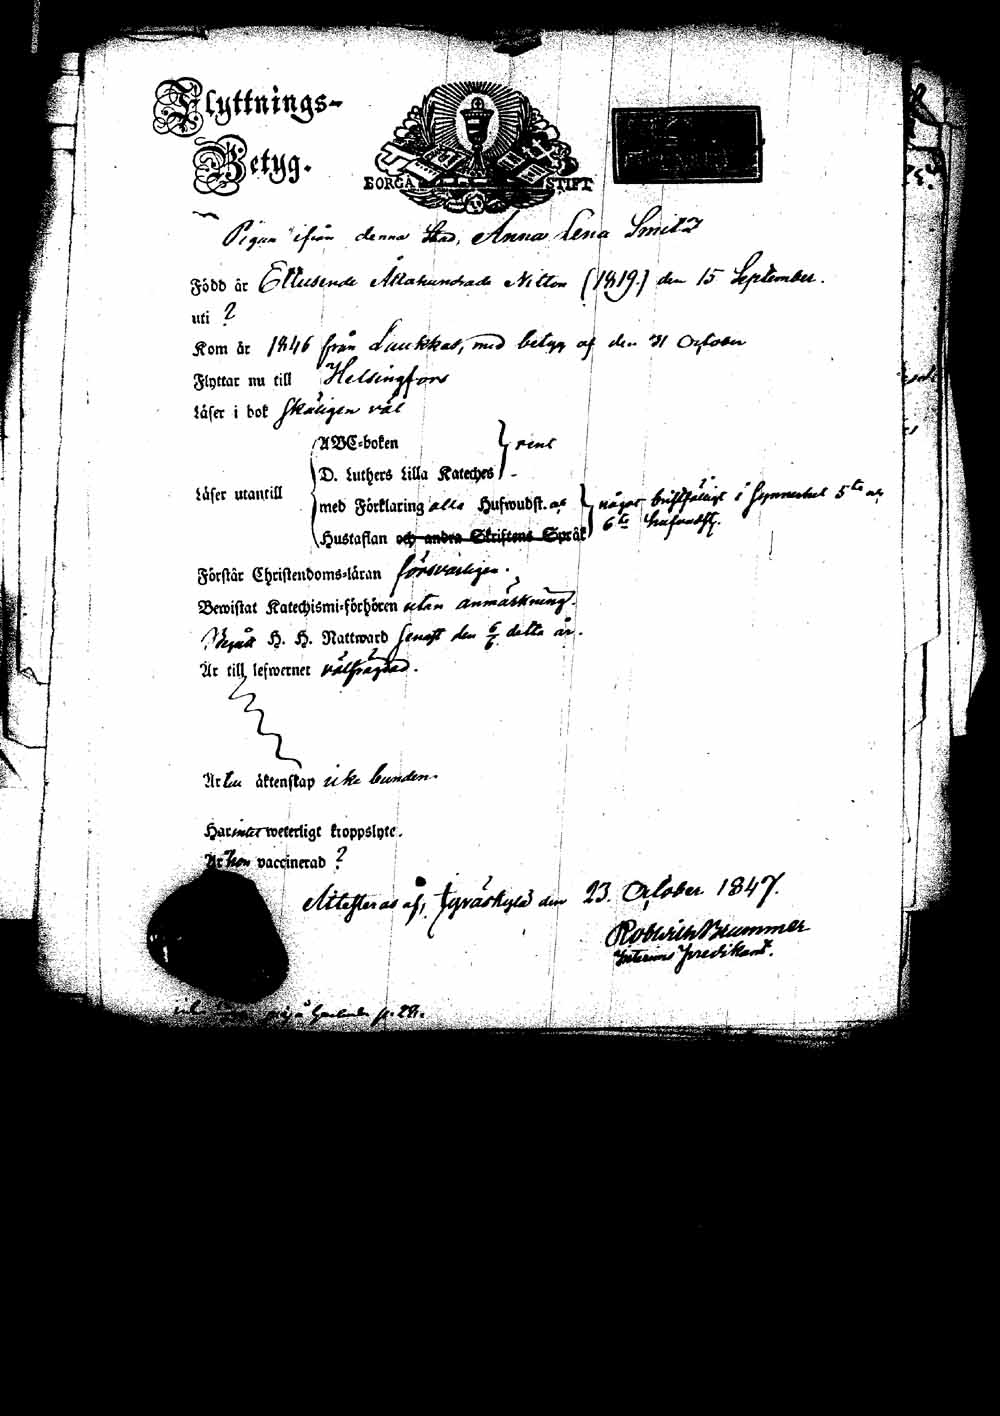 Flyttnings-
Betyg.
BORGÅ STIFT
Pigan ifrån denna Stad, Anna Lena Smitz
Född år Ettusende Åttahundrade Nitton (1819.) den 15 September.
uti ?
Kom år 1846 från Laukkas, med betyg af den 31 October
Flyttar nu till Helsingfors
Läser i bok skäligen väl
ABC-boken
D. Luthers Lilla Kateches } rent
Läser utantill
med Förklaring alla Hufwudst. af
Hustaflan och andra Skriftens Språk } något bristfälligt i synnerhet 5te och
6te hufvudst.
Förstår Christendoms-läran försvarligen.
Bewistat Katechismi-förhören utan anmärkning.
Begått H. H. Nattward senast den 6/6 detta år.
Är till lefwernet välfrägdad.
Är till äktenskap icke bunden.
Har intet weterligt kroppslyte.
Är hon vaccinerad ?
Attesteras af, Jyväskylä den 23. October 1847.
Brummer
Interims Predikant.
p. 28.